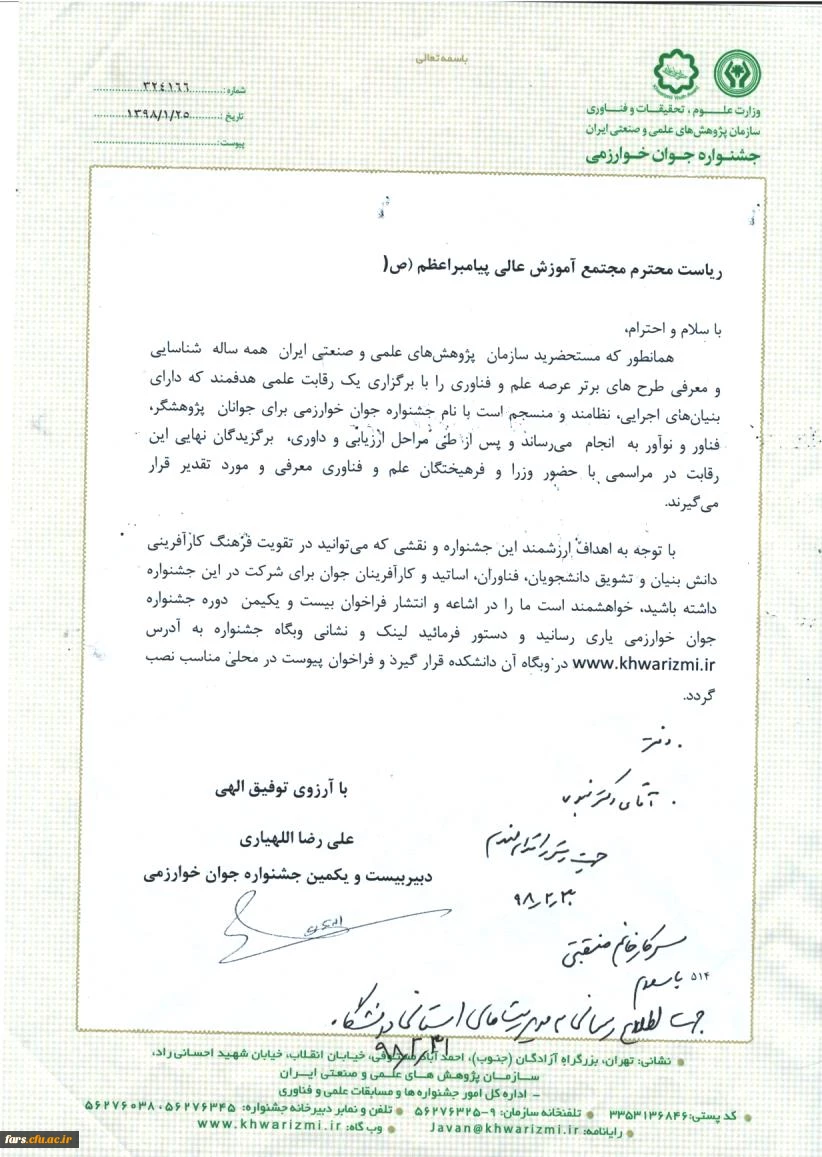 باسمه‌تعالی
شماره: ۳۲۴۱۶۶
تاریخ: ۱۳۹۸/۱/۲۵
پیوست:
وزارت علـــوم، تحقیقـات و فنـــاوری
سازمان پژوهش‌های علمی و صنعتی ایران
جشنـواره جـوان خـوارزمی
ریاست محترم مجتمع آموزش عالی پیامبراعظم (ص(
با سلام و احترام,
همانطور که مستحضرید سازمان پژوهش‌های علمی و صنعتی ایران همه ساله شناسایی
و معرفی طرح های برتر عرصه علم و فناوری را با برگزاری یک رقابت علمی هدفمند که دارای
بنیان‌های اجرایی، نظامند و منسجم است با نام جشنواره جوان خوارزمی برای جوانان پژوهشگر،
فناور و نوآور به انجام می‌رساند و پس از طی مراحل ارزیابی و داوری، برگزیدگان نهایی این
رقابت در مراسمی با حضور وزرا و فرهیختگان علم و فناوری معرفی و مورد تقدیر قرار
می‌گیرند.
با توجه به اهداف ارزشمند این جشنواره و نقشی که می‌توانید در تقویت فرهنگ کارآفرینی
دانش بنیان و تشویق دانشجویان، فناوران، اساتید و کارآفرینان جوان برای شرکت در این جشنواره
داشته باشید، خواهشمند است ما را در اشاعه و انتشار فراخوان بیست و یکیمن دوره جشنواره
جوان خوارزمی یاری رسانید و دستور فرمائید لینک و نشانی وبگاه جشنواره به آدرس
www.khwarizmi.ir در وبگاه آن دانشکده قرار گیرد و فراخوان پیوست در محلی مناسب نصب
گردد.
با آرزوی توفیق الهی
علی رضا اللهیاری
دبیربیست و یکمین جشنواره جوان خوارزمی
آقای دکتر
۹۸٫۲٫۳۰
سرکار خانم منقبتی
۵۱۴ با سلام
جهت اطلاع رسانی به مدیریت های استانی دانشگاه.
۹۸٫۲٫۳۱
نشانی: تهران، بزرگراه آزادگان (جنوب)، احمد آباد مستوفی، خیابان انقلاب، خیابان شهید احسانی راد،
سـازمـان پژوهش هـای علـمی و صنعتی ایــران
- اداره کل امور جشنواره ها و مسابقات علمی و فناوری
کد پستی: ۳۳۵۳۱۳۶۸۴۶ تلفنخانه سازمان: ۹-۵۶۲۷۶۳۲۵ تلفن و نمابر دبیرخانه جشنواره: ۵۶۲۷۶۳۴۵ ،۵۶۲۷۶۰۳۸
رایانامه: Javan@khwarizmi.ir وب گاه: www.khwarizmi.ir
fars.cfu.ac.ir